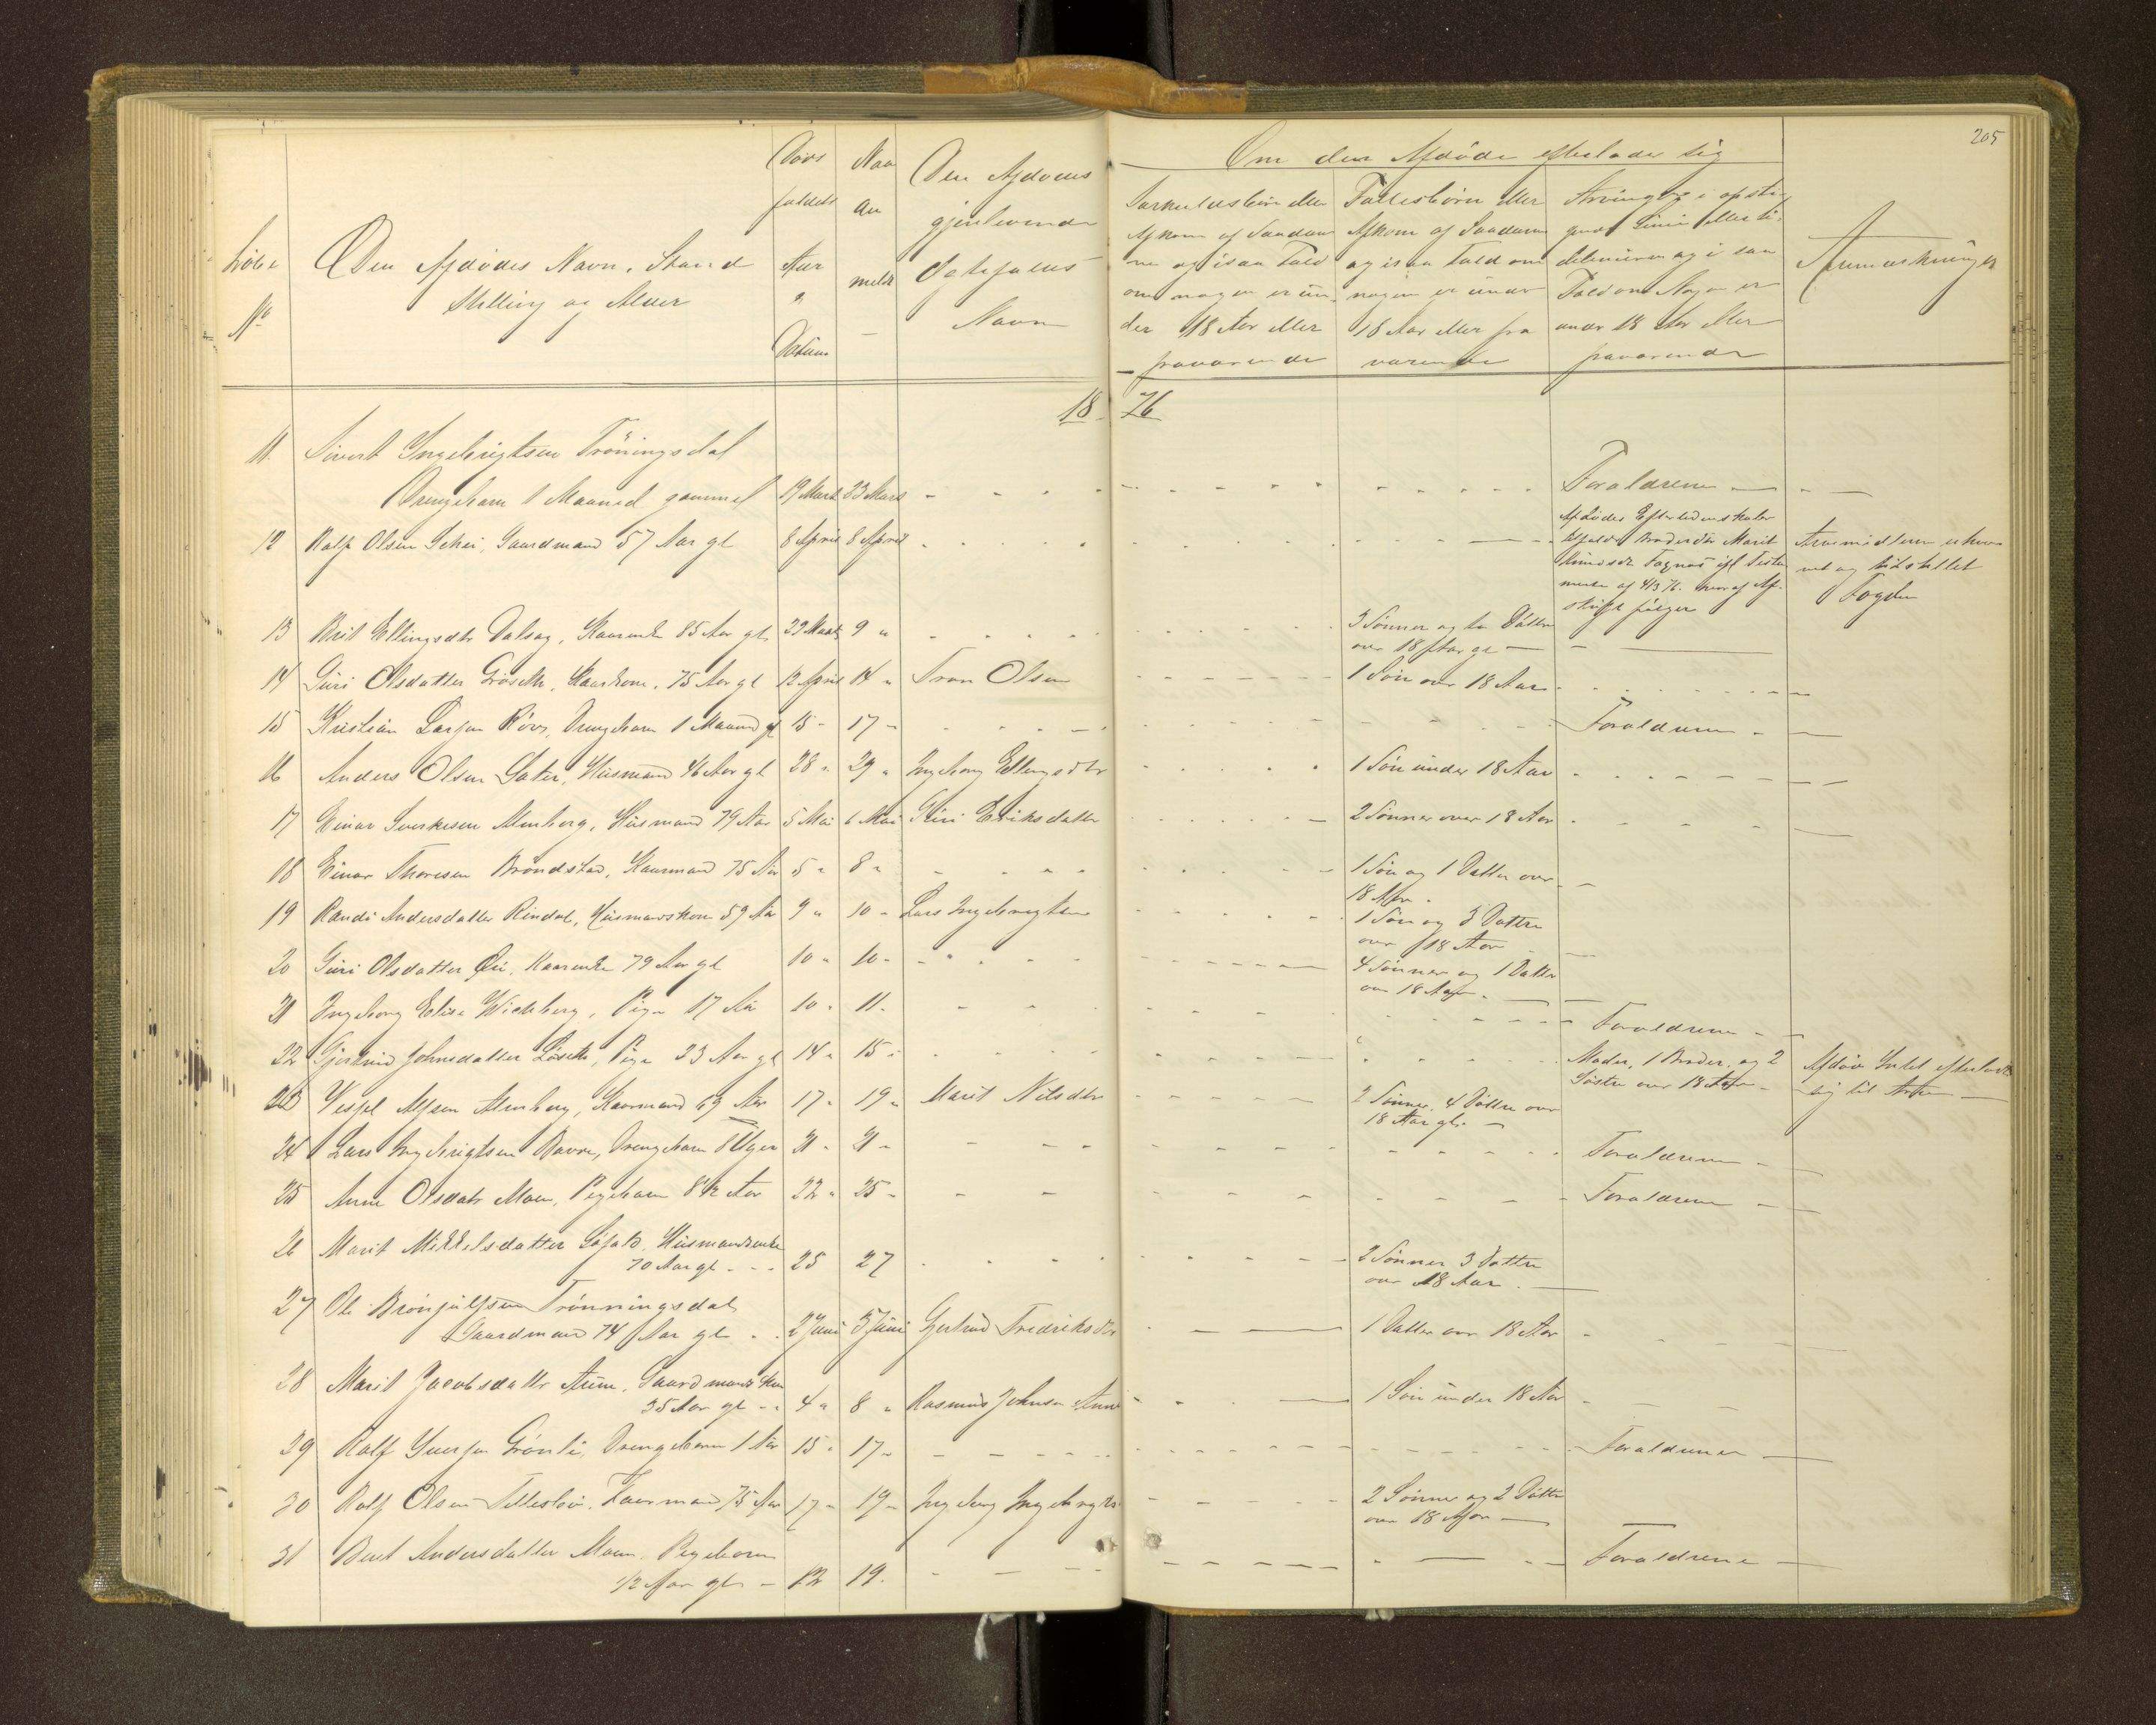 205
Om den Afdøde efterlader sig
Løbe
No
Den Afdødes Navn, Stand
Stilling og Alder
Døds
faldets
Aar
&
Datum
Naar
an
meldt
Den Afdødes
gjenlevende
Ægtefælles
Navn
Særkuldsbørn eller
Afkom af Saadan
ne og i saa Fald
om nogen er un-
der 18 Aar eller
fraværende
Fællesbørn eller
Afkom af Saadanne
og i saa Fald om
nogen er under
18 Aar eller fra
værende
Arvinger i opsti
gende Linie eller Si-
delinien og i saa
Fald om Nogen er
under 18 Aar eller
fraværende
Anmærkninger
18 76
11 Sivert Ingebrigtsen Tröningsdal
Drengebarn 1 Maaned gammel 19 Marts 23 Marts Forældrene
12 Ralf Olsen Gaardmand 57 Aar gl 8 April 8 April
Afdödes Efterladenskaber
tilfalder Broderdtr Marit
Fagnæs igl Testa
mente af 4/3 76. hvoraf Af-
skrift følger
Arvemidlerne
net og tilstillet
Fogden
13 Brit Ellingsdtr Dalsæg, Kaarenke 85 Aar gl. 29 Marts 9 " 3 Sönner og to Döttre
over 18 Aar gl
14 Guri Olsdatter Gröseth, Kaarkone, 75 Aar gl 12 April 14 " Tron Olsen 1 Sön over 18 Aar
15 Kristian Larsen Röv, Drengebarn 1 Maaned gl 15 - 17 - Forældrene
16 Anders Olsen Sæter, Husmand 46 Aar gl 28 " 29 " Ingeborg Ellingsdtr 1 Sön under 18 Aar
17 Einar Sverkesen Almberg, Husmand 79 Aar 5 Mai 6 Mai Guri Eriksdatter 2 Sönner over 18 Aar
18 Einar Thoresen Bröndstad, Kaarmand 75 Aar 5 " 8 " 1 Sön og 1 Datter over
18 Aar
19 Randi Andersdatter Rindal, Husmandskone 59 Aar 9 " 10 " Lars Ingebrigtsen 1 Sön og 3 Döttre
over 18 Aar
20 Guri Olsdatter Öie, Kaarenke 79 Aar gl 10 " 10 - 4 Sönner og 1 Datter
over 18 Aar
21 Ingeborg Elise Wickberg, Pige 17 Aar 10 - 11 - Forældrene
22 Gjertrud Johnsdatter Löseth, Pige 23 Aar gl 14 " 15 - Moder, 1 Broder, og 2
Söstre over 18 Aar
Afdöde Intet efterladt
sig til Arv
23 Vespel Alfsen Almberg, Kaarmand 69 Aar 17 - 19 " Marit Nilsdtr 2 Sönner, 4 Döttre over
18 Aar gl.
24 Lars Ingebrigtsen Bævre, Drengebarn 8 Uger 21 - 21 - Forældrene
25 Anne Olsdatr Moen, Pigebarn 8 1/2 Aar 22 " 25 - Forældrene
26 Marit Mikkelsdatter Löfald, Husmandsenke
70 Aar gl 25 27 2 Sönner 3 Döttre
over 18 Aar
27 Ole Brönjulfsen Trönningsdal
Gaardmand 74 Aar gl 2 Juni 3 Juni Gjertrud Fredriksdtr 1 Datter over 18 Aar
28 Marit Jacobsdattr Aune, Gaardmandskone
35 Aar gl 4 " 8 " Rasmus Johnsen Aune 1 Sön under 18 Aar
29 Ralf Iversen Grönli, Drengebarn 1 Aar 15 - 17 - Forældrene
30 Rolf Olsen Tellesbö, Kaarmand 75 Aar 17 - 19 - Ingeborg Ingebrigtsd 2 Sönner og 2 Döttre
over 18 Aar
31 Berit Andersdatter Moen Pigebarn
1/2 Aar gl 12 19. Forældrene